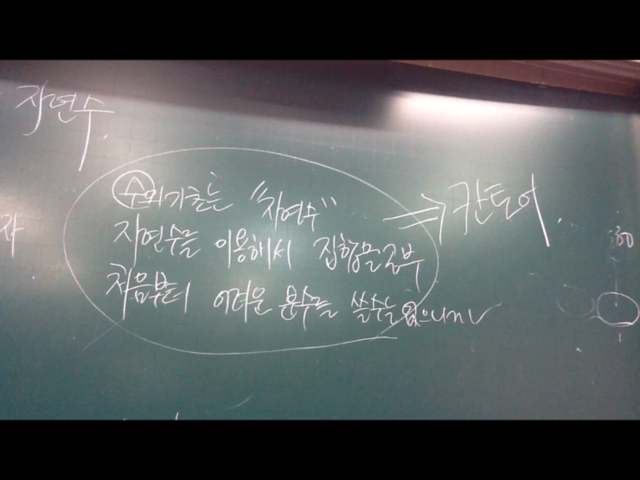 자연수
수의 기초는 "자연수"
자연수를 이용해서 집합을 공부
처음부터 어려운 문수를 쓸수는 없으니까
⇒ 칸토어.
자